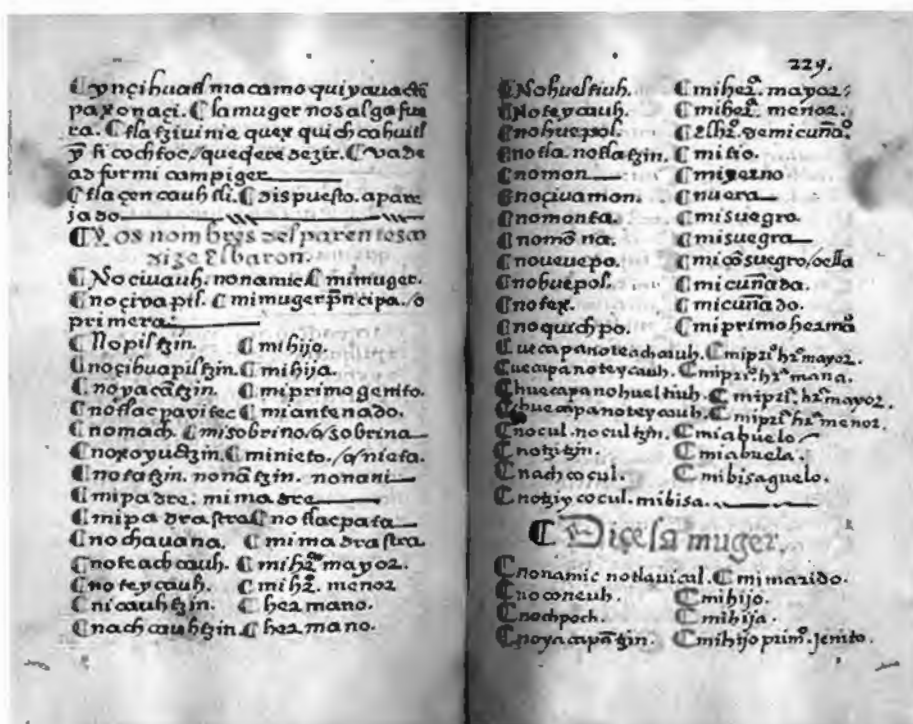 ¶ ynçihuatl macamo quiyauac
paxonaçi. ¶ la muger no salga fue
ra. ¶ tlatziuinie quexquich cahuitl
ȳ ti cochtoc, quedere dezir. ¶ vade
ad formicam piger
¶ tlaçencauhtli. ¶ dispuesto. apare
jado
¶ los nombres del parentesco
dize el baron.
¶ Nociuauh. nonamic ¶ mi muger.
¶ noçivapil. ¶ mi muger prinçipa. /o
primera
¶ Nopiltzin. ¶ mi hijo.
¶ noçihuapiltzin. ¶ mi hija.
¶ noyacātzin. ¶ mi primo genito.
¶ notlacpavitec ¶ mi antenado.
¶ nomach. ¶ mi sobrino /o/ sobrina
¶ noxoyuhtzin. ¶ mi nieto. /o/ nieta.
¶ notatzin. nonātzin. nonani
¶ mi padre. mi madre
¶ mi padrastra ¶ notlacpata
¶ nochauana. ¶ mi madrastra
¶ noteachcauh. ¶ mi hrº mayor.
¶ noteycauh. ¶ mi hrº. menor
¶ nicauhtzin. ¶ hermano.
¶ nachcauhtzin. ¶ hermano.
229.
¶ Nohueltiuh. ¶ mi herª. mayor.
¶ Noteycauh. ¶ mi herª. menor.
¶ nohuepol. ¶ el hrº. de mi cuñaº.
¶ notla. notlatzin. ¶ mi tio.
¶ nomon ¶ mi yerno
¶ noçiuamon. ¶ nuera
¶ nomonta. ¶ mi suegro.
¶ nomō na. ¶ mi suegra
¶ noueuepo. ¶ mi cōsuegro, /o ella
¶ nohuepol. ¶ mi cuñada.
¶ notex. ¶ mi cuñado.
¶ noquichpo. ¶ mi primo hermāº
¶ uecapanoteachcauh. ¶ mi priº. hrº mayor.
¶ uecapanoteycauh. ¶ mi priº. hrº mana.
¶ huecapanohueltiuh. ¶ mi priª. hrª mayor.
¶ huecapanoteycauh. ¶ mi priª hrª menor.
¶ nocul. nocultzin. ¶ mi abuelo
¶ notzitzin. ¶ mi abuela.
¶ nachcocul. ¶ mi bisaguelo.
¶ notziycocul. mi bisa.
¶ Diçe la muger.
¶ nonamic notlauical. ¶ mi marido.
¶ noconeuh. ¶ mi hijo.
¶ nochpoch. ¶ mi hija.
¶ noyacapātzin. ¶ mi hijo primº. jenito.